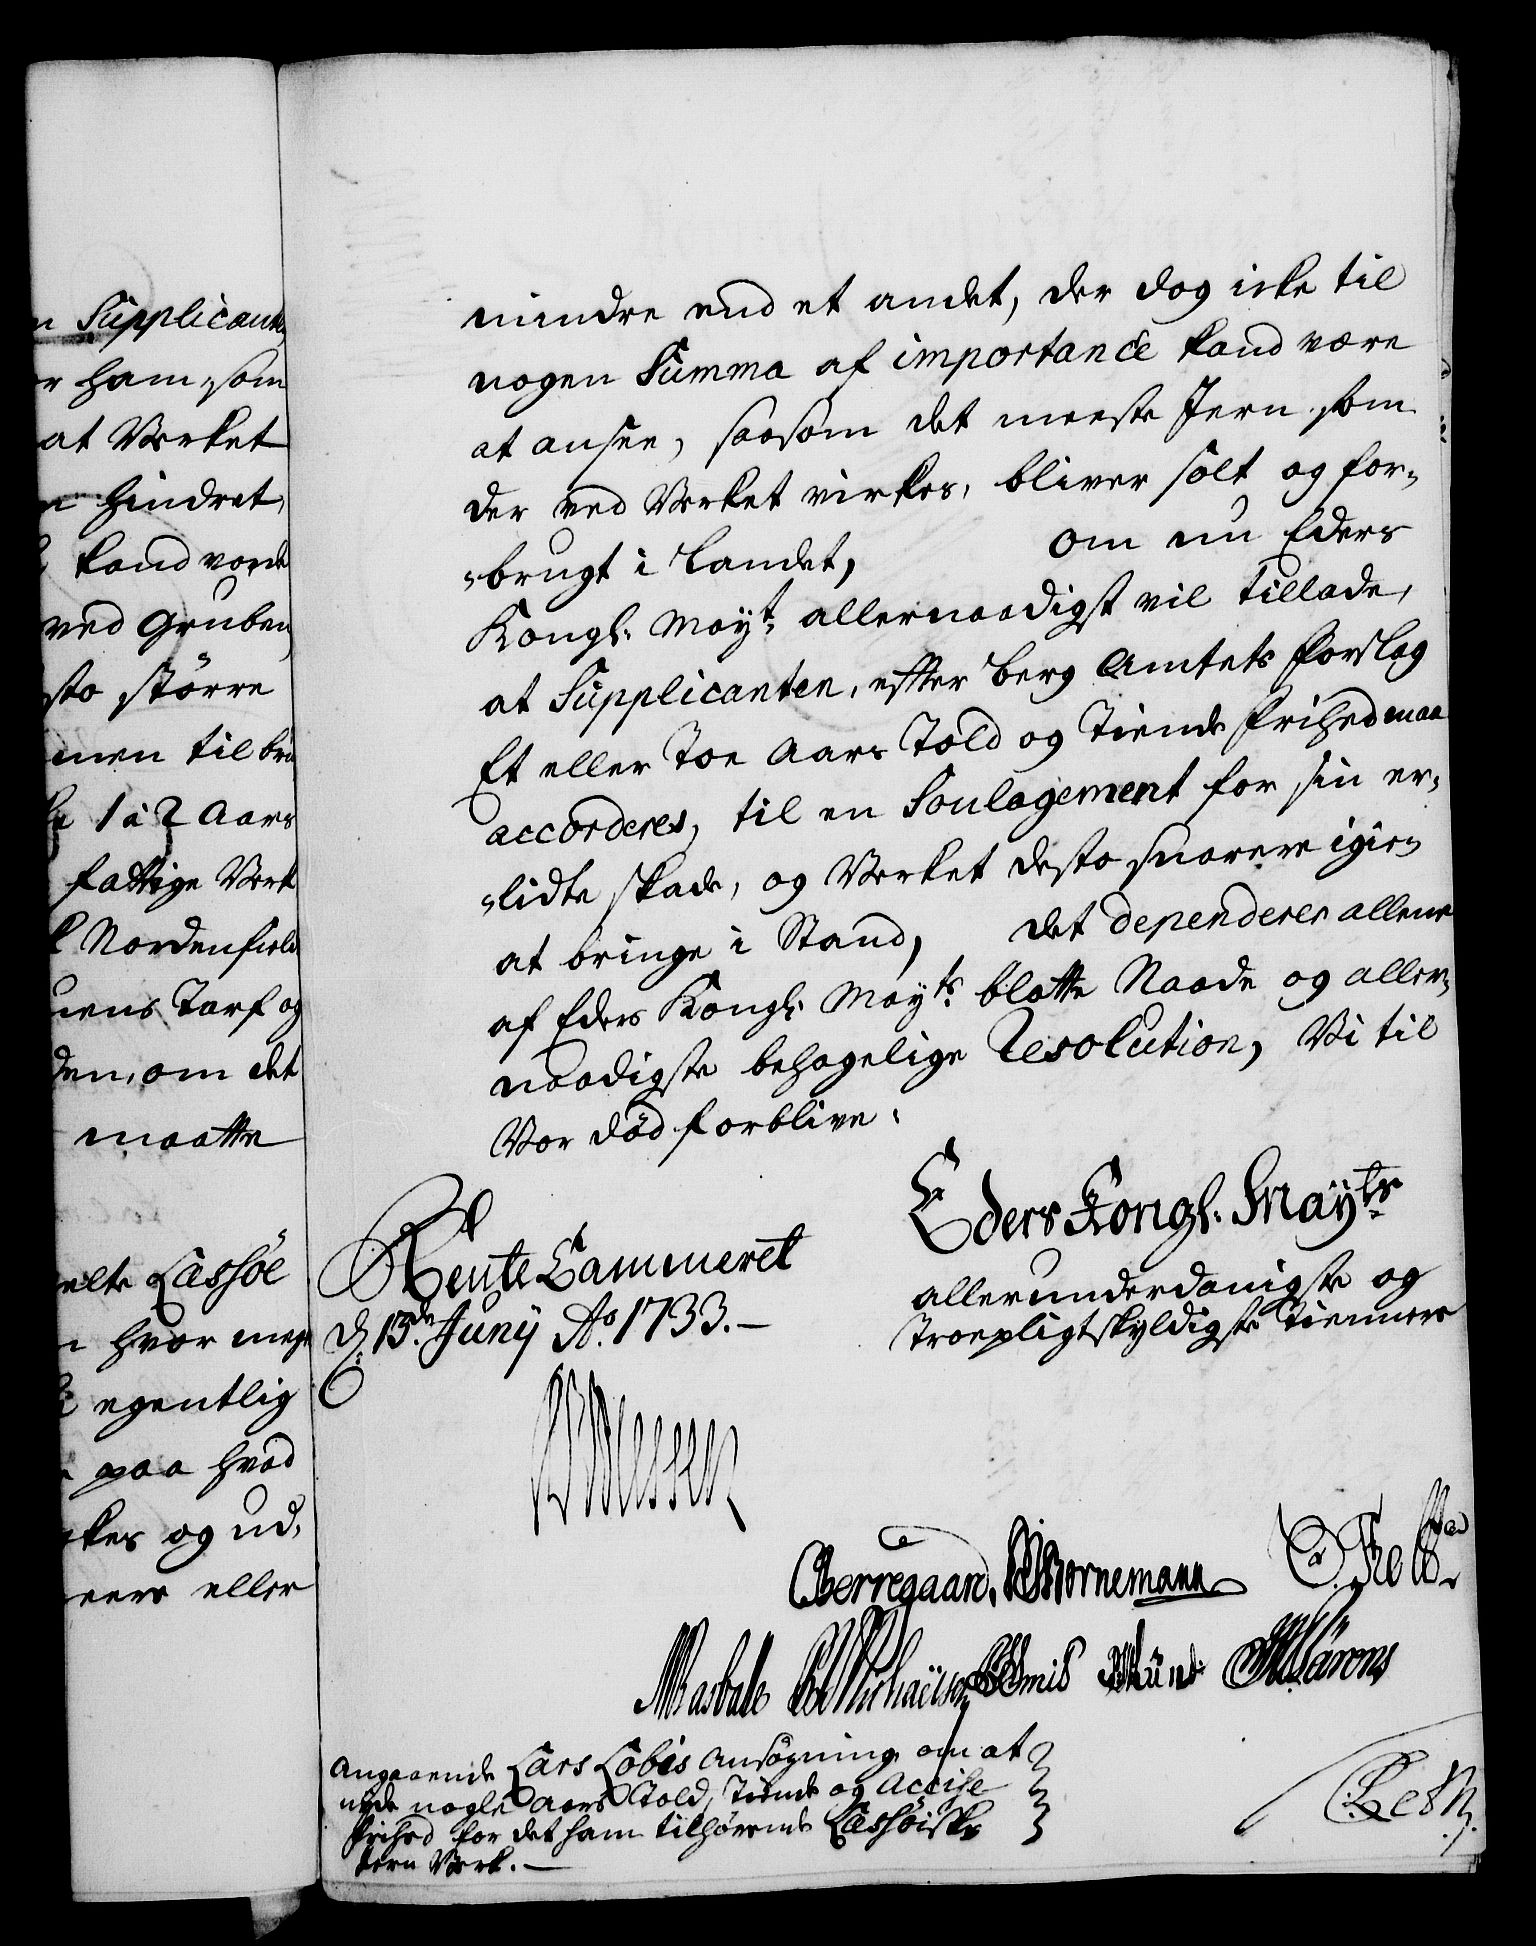 n Supplicant
r ham, som
at Verket
n hindret,
kand vorde
ved Gruben,
sto större
men til bra
1 à 2 Aars
fattige Verk
Nordenfield
nens Tarf og
den, om det
maatte
elte Læssöe
hvor meget
egentlig
paa hvad
kes og ud,
eers eller
mindre end et andet, der dog icke til
nogen Summa af importance kand være
at ansee, saasom det meeste Jern som
der ved Verket virkes, bliver solt og for-
-brugt i Landet, om nu Eders
Kongl. Mayt. allernaadigst vil tillade,
at Supplicanten, efter Berg Amtets Forslag
Et eller Toe Aars Told og Tiende Frihed maa
accorderes, til en Soulagement for sin er-
-lidte skade, og Verket desto snarere igien
at bringe i Stand, det dependerer allene
af Eders Kongl. Mayts. blotte Naade og aller-
naadigste behagelige Resolution, Vi til
Vor död forblive.
Eders Kongl. Mayts.
allerunderdanigste og
Troepligtskyldigste Tienner
Rente Cammeret
d. 13de Junij Ao. 1733.
Berregaard. Bornemann
Angaaende Lars Lobis Ansögning om at
nyde nogle Aars Told, Tiende og Accise
Frihed for det ham tilhörende Læssöiske
Jern Verk.